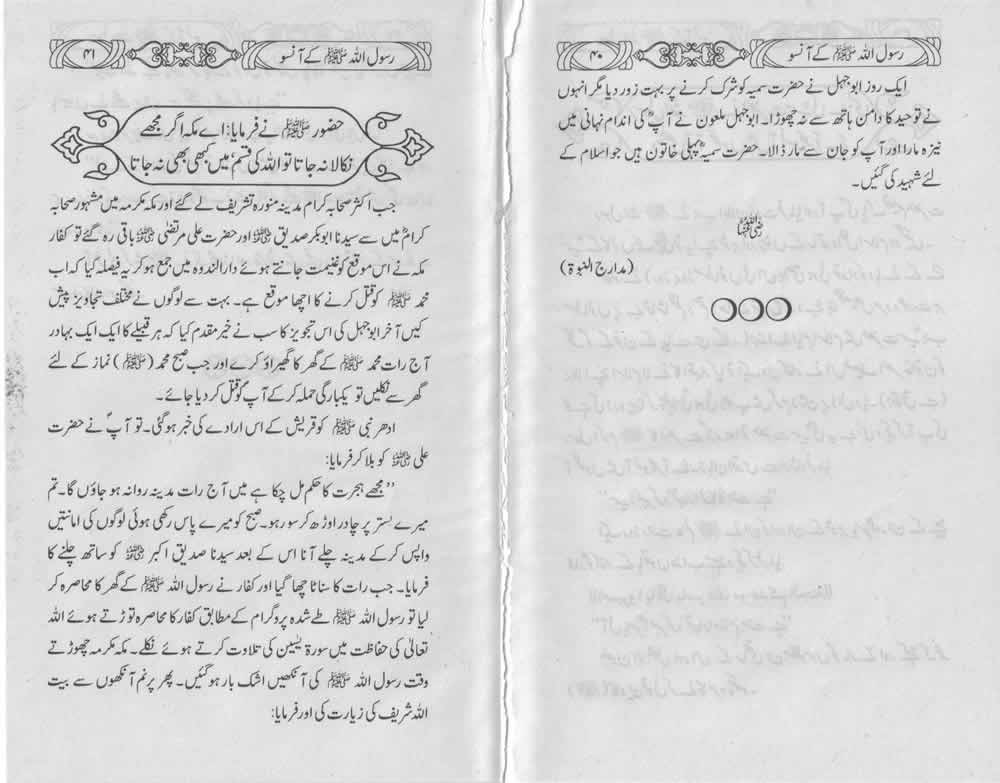 رسول اللہ ﷺ کے آنسو
۴۰
ایک روز ابوجہل نے حضرت سمیہ کو شرک کرنے پر بہت زور دیا مگر انہوں
نے توحید کا دامن ہاتھ سے نہ چھوڑا۔ ابوجہل ملعون نے آپؓ کی اندام نہانی میں
نیزہ مارا اور آپ کو جان سے مار ڈالا۔ حضرت سمیہؓ پہلی خاتون ہیں جو اسلام کے
لئے شہید کی گئیں۔
رضی اللہ عنہا
(مدارج النبوۃ)
رسول اللہ ﷺ کے آنسو
۴۱
حضور ﷺ نے فرمایا: اے مکہ اگر مجھے
نکالا نہ جاتا تو اللہ کی قسم میں کبھی بھی نہ جاتا
جب اکثر صحابہ کرام مدینہ منورہ تشریف لے گئے اور مکہ مکرمہ میں مشہور صحابہ
کرامؓ میں سے سیدنا ابوبکر صدیق ؓ اور حضرت علی مرتضٰی ؓ باقی رہ گئے تو کفار
مکہ نے اس موقع کو غنیمت جانتے ہوئے دارالندوہ میں جمع ہو کر یہ فیصلہ کیا کہ اب
محمد ﷺ کو قتل کرنے کا اچھا موقع ہے۔ بہت سے لوگوں نے مختلف تجاویز پیش
کیں آخر ابوجہل کی اس تجویز کا سب نے خیر مقدم کیا کہ ہر قبیلے کا ایک ایک بہادر
آج رات محمد ﷺ کے گھر کا گھیراؤ کرے اور جب صبح محمد (ﷺ) نماز کے لئے
گھر سے نکلیں تو یکبارگی حملہ کر کے آپ کو قتل کر دیا جائے۔
ادھر نبی ﷺ کو قریش کے اس ارادے کی خبر ہو گئی۔ تو آپ نے حضرت
علی ؓ کو بلا کر فرمایا:
”مجھے ہجرت کا حکم مل چکا ہے میں آج رات مدینہ روانہ ہو جاؤں گا۔ تم
میرے بستر پر چادر اوڑھ کر سو رہو۔ صبح کو میرے پاس رکھی ہوئی لوگوں کی امانتیں
واپس کر کے مدینہ چلے آنا اس کے بعد سیدنا صدیق اکبر ؓ کو ساتھ چلنے کا
فرمایا۔ جب رات کا سناٹا چھا گیا اور کفار نے رسول اللہ ﷺ کے گھر کا محاصرہ کر
لیا تو رسول اللہ ﷺ طے شدہ پروگرام کے مطابق کفار کا محاصرہ توڑتے ہوئے اللہ
تعالیٰ کی حفاظت میں سورۃ یٰسین کی تلاوت کرتے ہوئے نکلے۔ مکہ مکرمہ چھوڑتے
وقت رسول اللہ ﷺ کی آنکھیں اشک بار ہو گئیں۔ پھر پرنم آنکھوں سے بیت
اللہ شریف کی زیارت کی اور فرمایا: